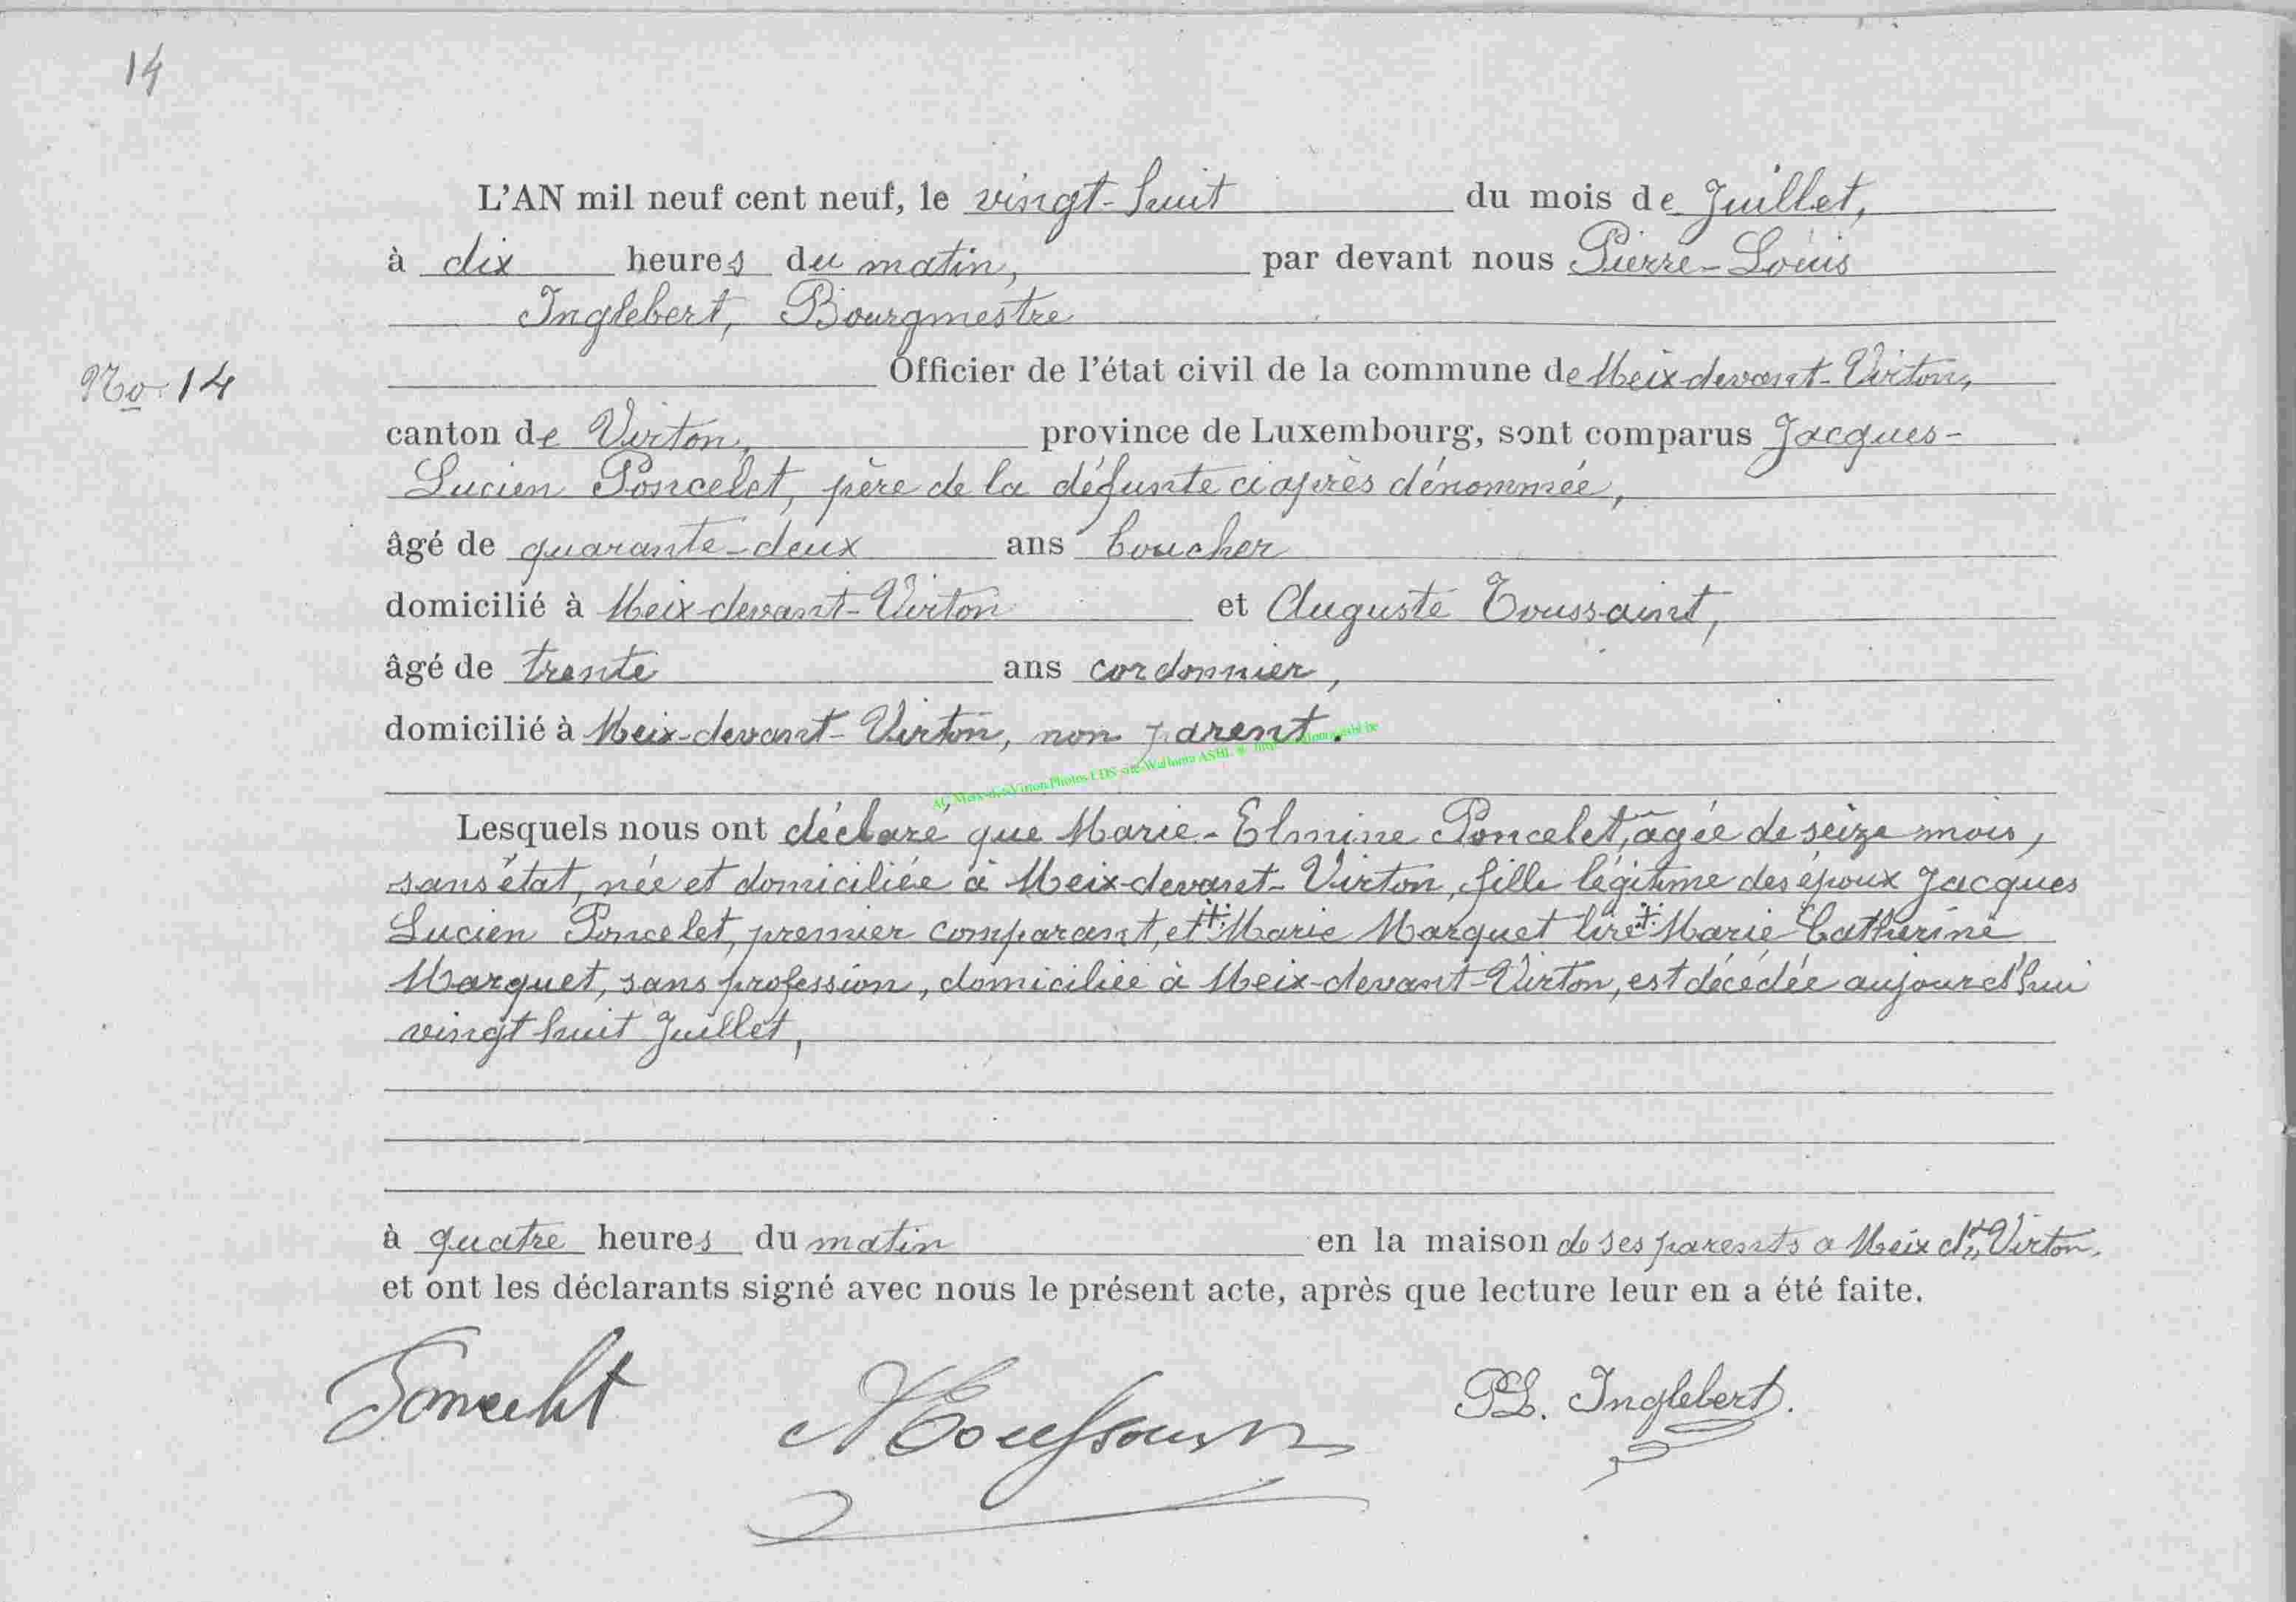 14
L'AN mil neuf cent neuf, le vingt-huit du mois de Juillet,
à dix heures du matin, par devant nous Pierre-Louis
Inglebert, Bourgmestre
Officier de l'état civil de la commune de Meix-devant-Virton,
No 14
canton de Virton, province de Luxembourg, sont comparus Jacques-
Lucien Poncelet, père de la défunte ci après dénommée,
âgé de quarante-deux ans boucher
domicilié à Meix-devant-Virton et Auguste Toussaint,
âgé de trente ans cordonnier,
domicilié à Meix-devant-Virton, non parent.
Lesquels nous ont déclaré que Marie-Elmine Poncelet, âgée de seize mois,
sans état, née et domiciliée à Meix-devant-Virton, fille légitime des époux Jacques
Lucien Poncelet, premier comparant, et Marie Marquet lire Marie Catherine
Marquet, sans profession, domiciliée à Meix-devant-Virton, est décédée aujourd'hui
vingt huit Juillet,
à quatre heures du matin en la maison de ses parents a Meix dt Virton.
et ont les déclarants signé avec nous le présent acte, après que lecture leur en a été faite.
Poncelet A Toussaint PL. Inglebert.